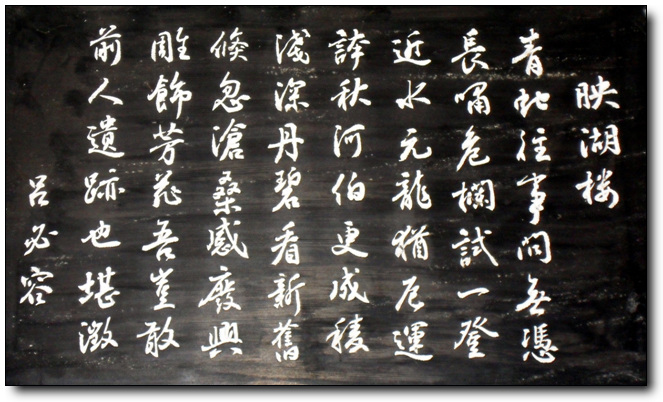 映湖楼
青地往事問無憑
長嘯危欄試一登
近水元龍猶厄運
誇秋河伯更成稜
淺深丹碧看新舊
倏忽滄桑感廢興
雕飾芳菲吾豈敢
前人遺跡也堪徵
呂必容